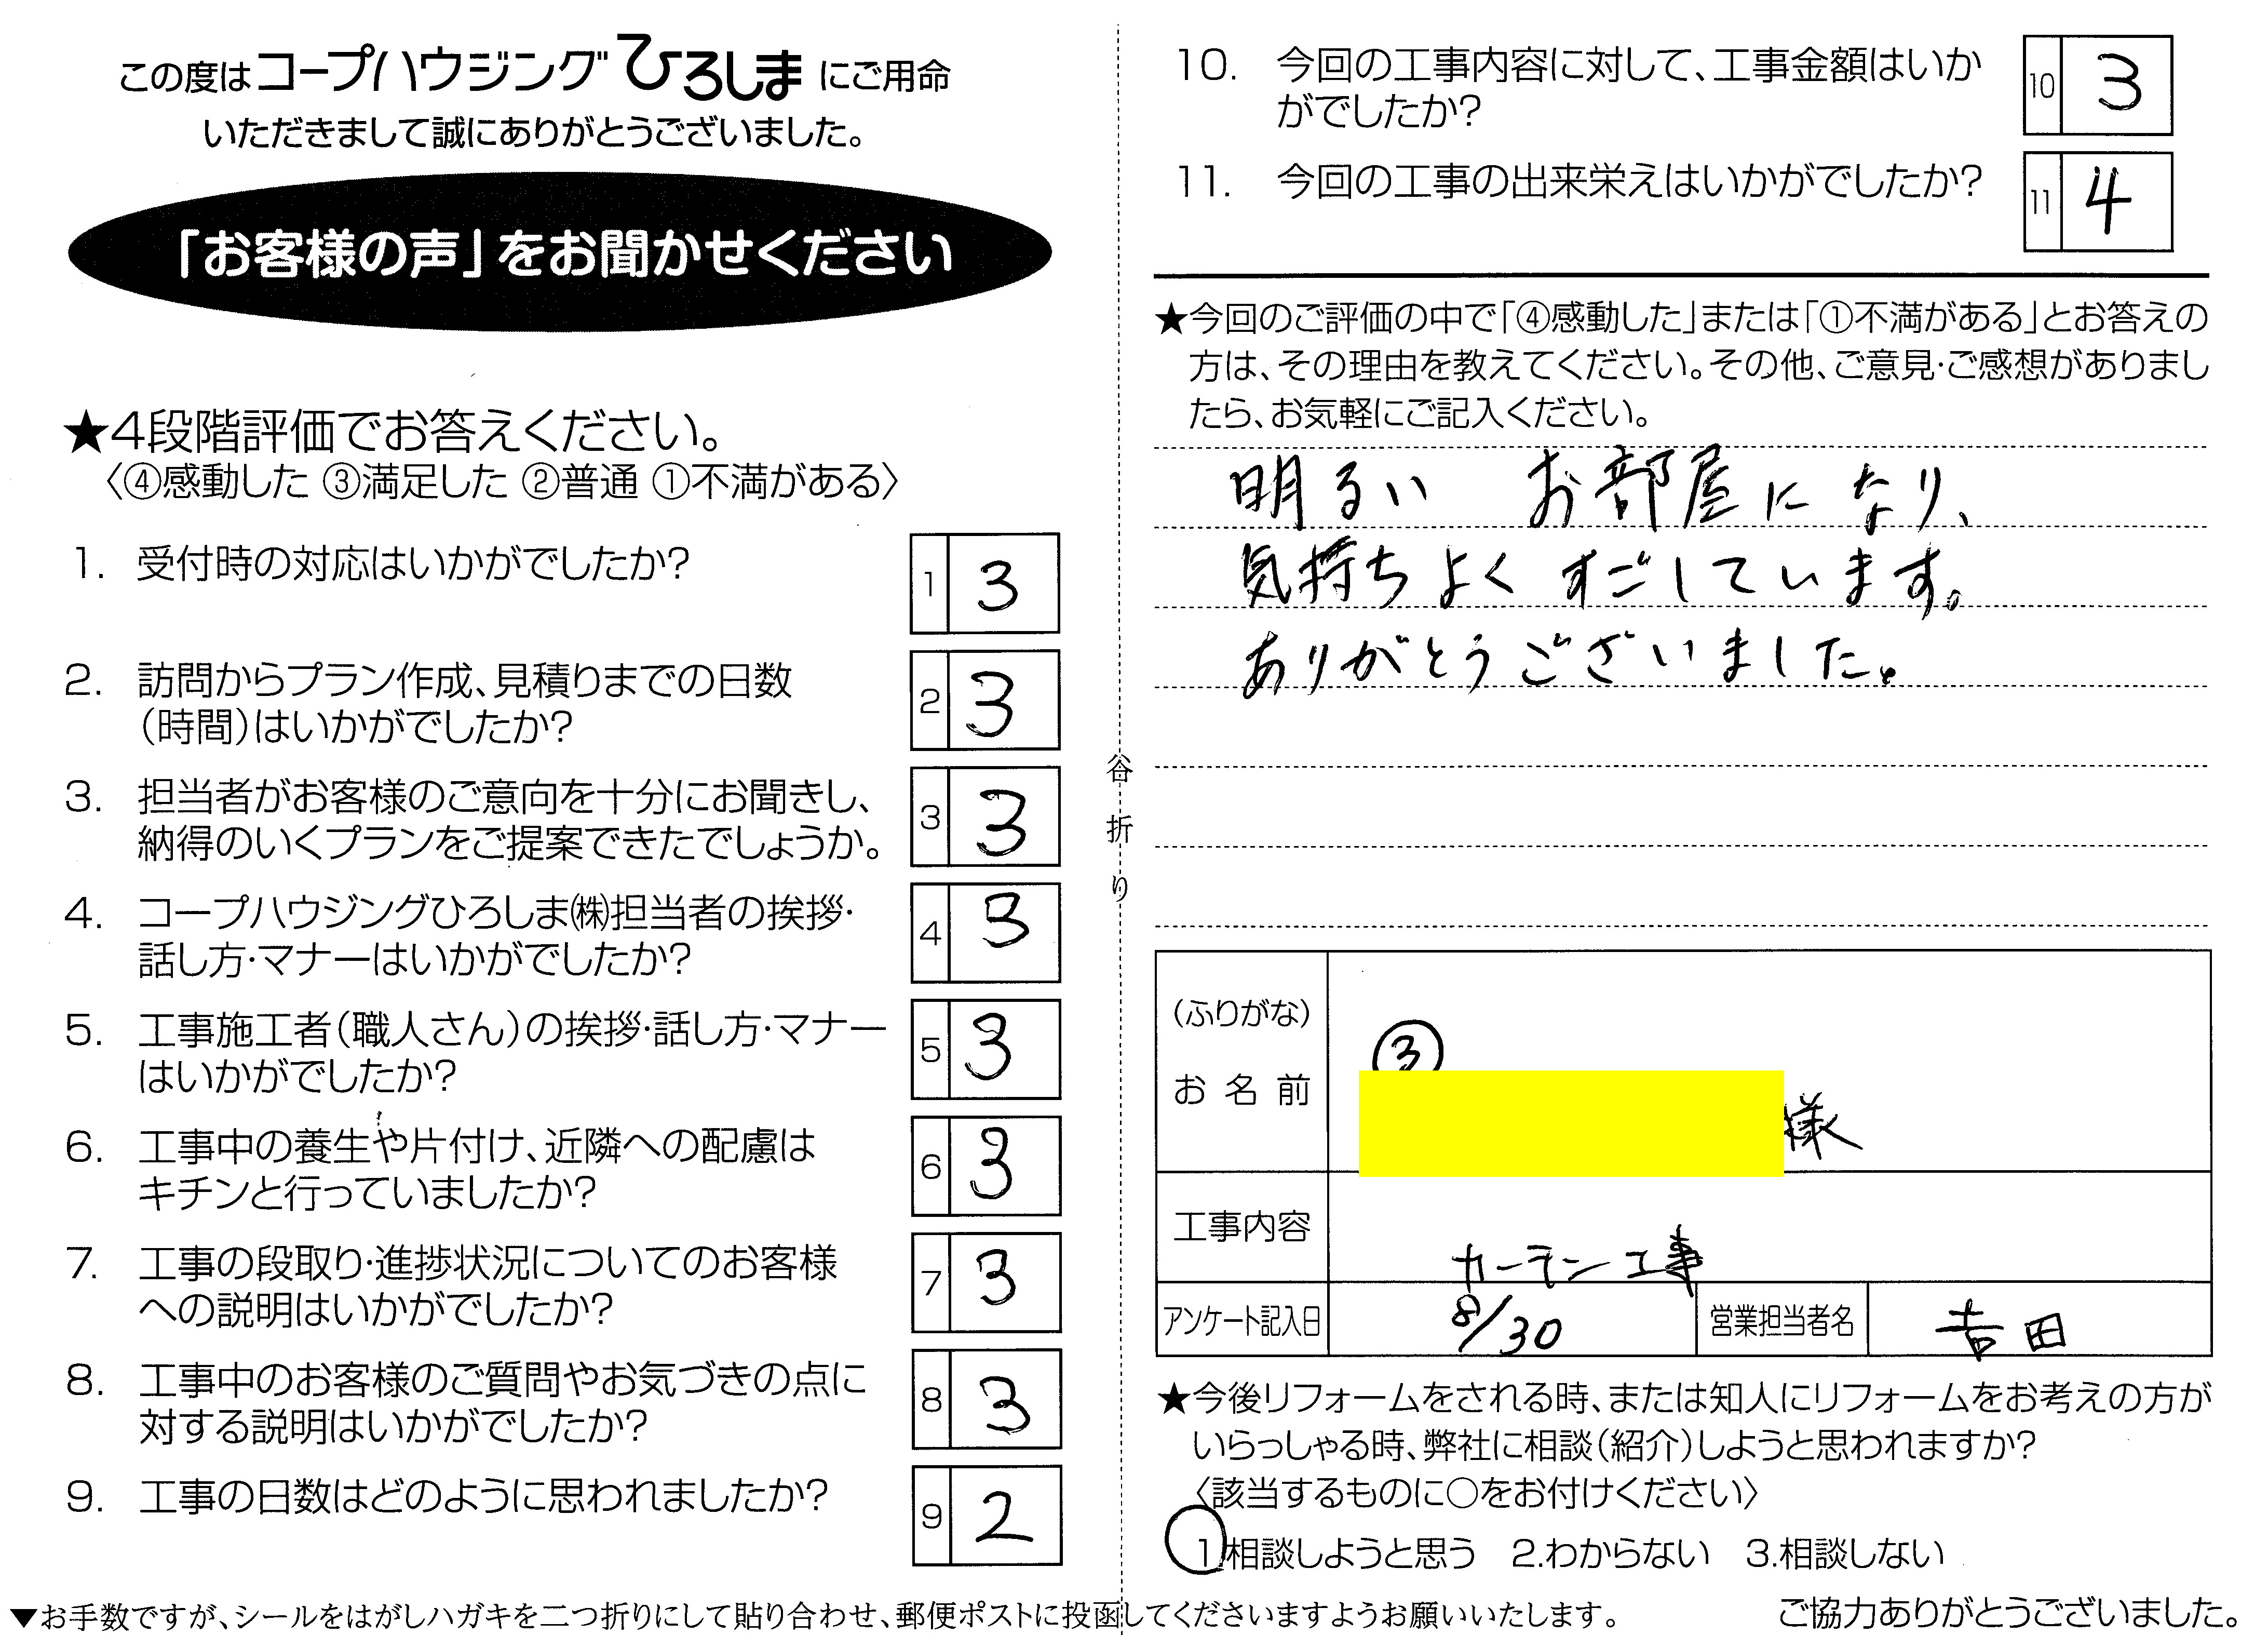 この度はコープハウジングひろしまにご用命
いただきまして誠にありがとうございました。
「お客様の声」をお聞かせください
★4段階評価でお答えください。
〈④感動した ③満足した ②普通 ①不満がある〉
1. 受付時の対応はいかがでしたか?
1 3
2. 訪問からプラン作成、見積りまでの日数
(時間)はいかがでしたか?
2 3
3. 担当者がお客様のご意向を十分にお聞きし、
納得のいくプランをご提案できたでしょうか。
3 3
4. コープハウジングひろしま㈱担当者の挨拶・
話し方・マナーはいかがでしたか?
4 3
5. 工事施工者(職人さん)の挨拶・話し方・マナー
はいかがでしたか?
5 3
6. 工事中の養生や片付け、近隣への配慮は
キチンと行っていましたか?
6 3
7. 工事の段取り・進捗状況についてのお客様
への説明はいかがでしたか?
7 3
8. 工事中のお客様のご質問やお気づきの点に
対する説明はいかがでしたか?
8 3
9. 工事の日数はどのように思われましたか?
9 2
谷折り
10. 今回の工事内容に対して、工事金額はいか
がでしたか?
10 3
11. 今回の工事の出来栄えはいかがでしたか?
11 4
★今回のご評価の中で「④感動した」または「①不満がある」とお答えの
方は、その理由を教えてください。その他、ご意見・ご感想がありまし
たら、お気軽にご記入ください。
明るい お部屋になり、
気持ちよく すごしています。
ありがとうございました。
(ふりがな)
お名前
③
様
工事内容
カーテン工事
アンケート記入日 8/30 営業担当者名 吉田
★今後リフォームをされる時、または知人にリフォームをお考えの方が
いらっしゃる時、弊社に相談(紹介)しようと思われますか?
〈該当するものに○をお付けください〉
1.相談しようと思う 2.わからない 3.相談しない
▼お手数ですが、シールをはがしハガキを二つ折りにして貼り合わせ、郵便ポストに投函してくださいますようお願いいたします。
ご協力ありがとうございました。